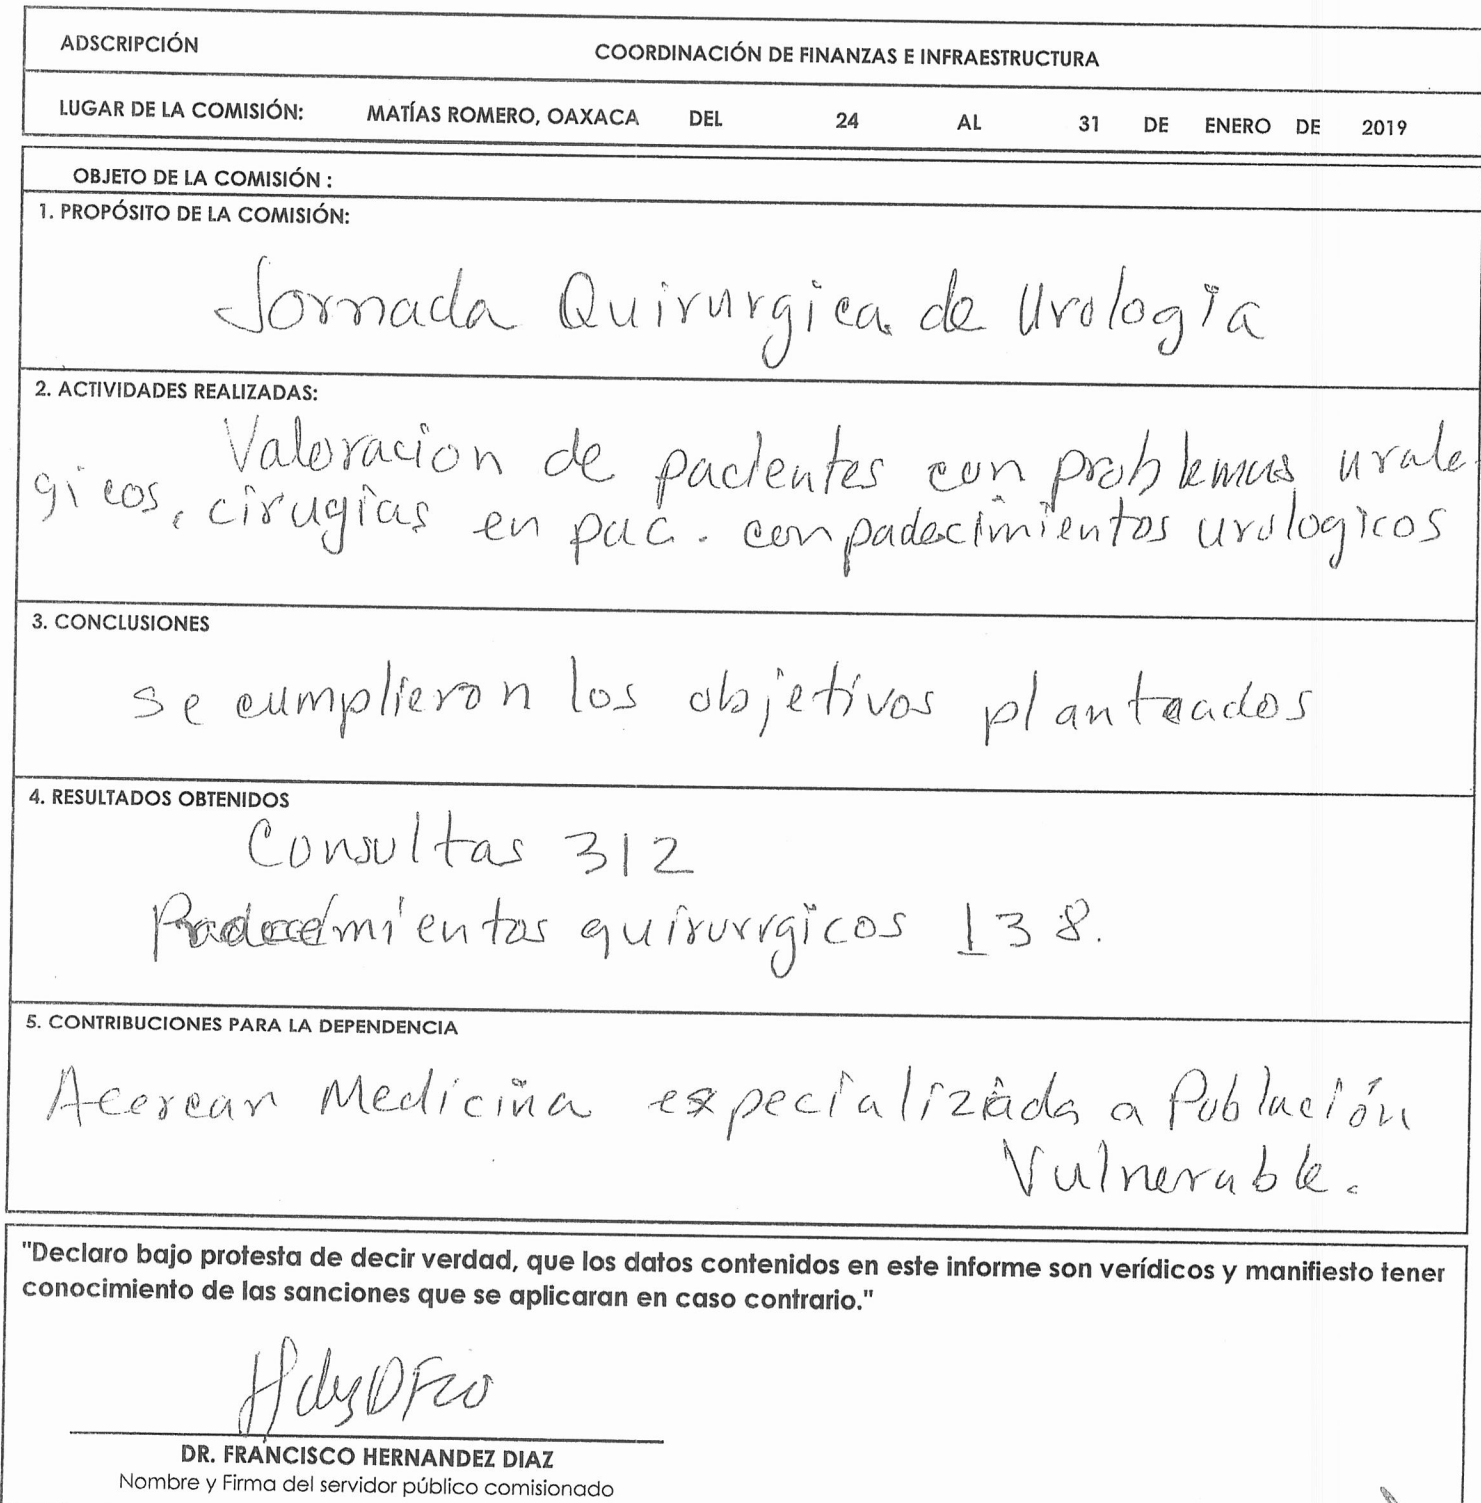 ADSCRIPCIÓN COORDINACIÓN DE FINANZAS E INFRAESTRUCTURA
LUGAR DE LA COMISIÓN: MATÍAS ROMERO, OAXACA DEL 24 AL 31 DE ENERO DE 2019
OBJETO DE LA COMISIÓN :
1. PROPÓSITO DE LA COMISIÓN:
Jornada Quirurgica de Urología
2. ACTIVIDADES REALIZADAS:
Valoracion de pacientes con problemas urolo
gicos, cirugías en pac. con padecimientos urologicos
3. CONCLUSIONES
se cumplieron los objetivos planteados
4. RESULTADOS OBTENIDOS
Consultas 312
quirurgicos 138.
5. CONTRIBUCIONES PARA LA DEPENDENCIA
Acercar Medicina especializada a Población
Vulnerable.
"Declaro bajo protesta de decir verdad, que los datos contenidos en este informe son verídicos y manifiesto tener
conocimiento de las sanciones que se aplicaran en caso contrario."
DR. FRANCISCO HERNANDEZ DIAZ
Nombre y Firma del servidor público comisionado